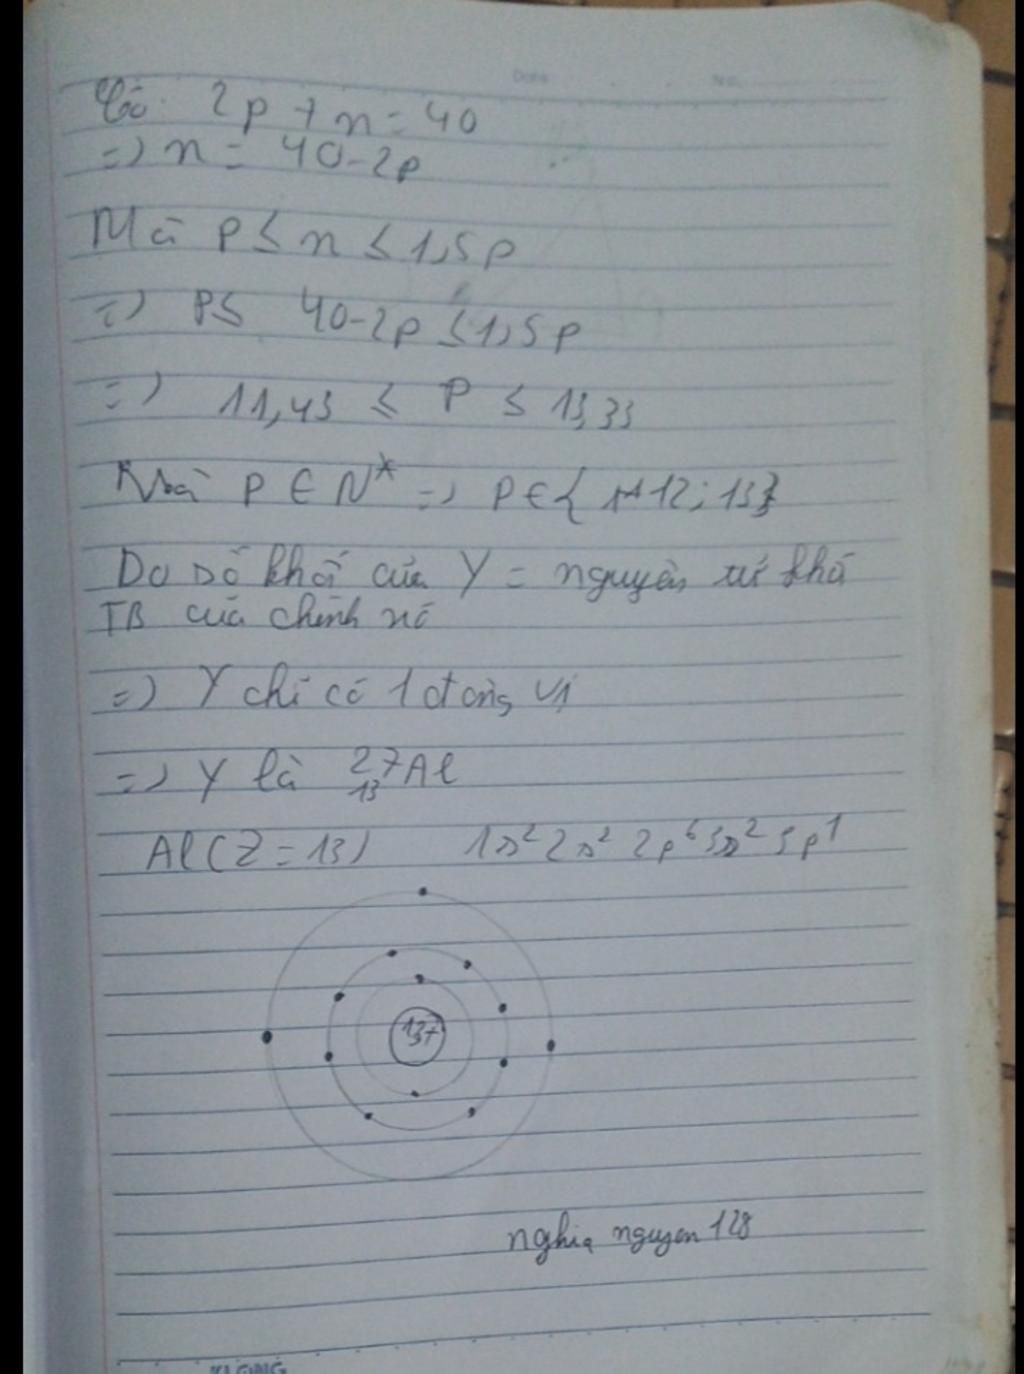 Date No.
Có: 2p + n = 40
=> n = 40-2p
Mà p ≤ n ≤ 1,5p
=> p ≤ 40-2p ≤ 1,5p
=> 11,43 ≤ p ≤ 13,33
Mà p ∈ N* => p ∈ { 12; 13}
Do số khối của Y = nguyên tử khối
TB của chính nó
=> Y chỉ có 1 đồng vị
=> Y là ²⁷₁₃Al
Al (Z = 13) 1s² 2s² 2p⁶ 3s² 3p¹
13+
nghia nguyen 128